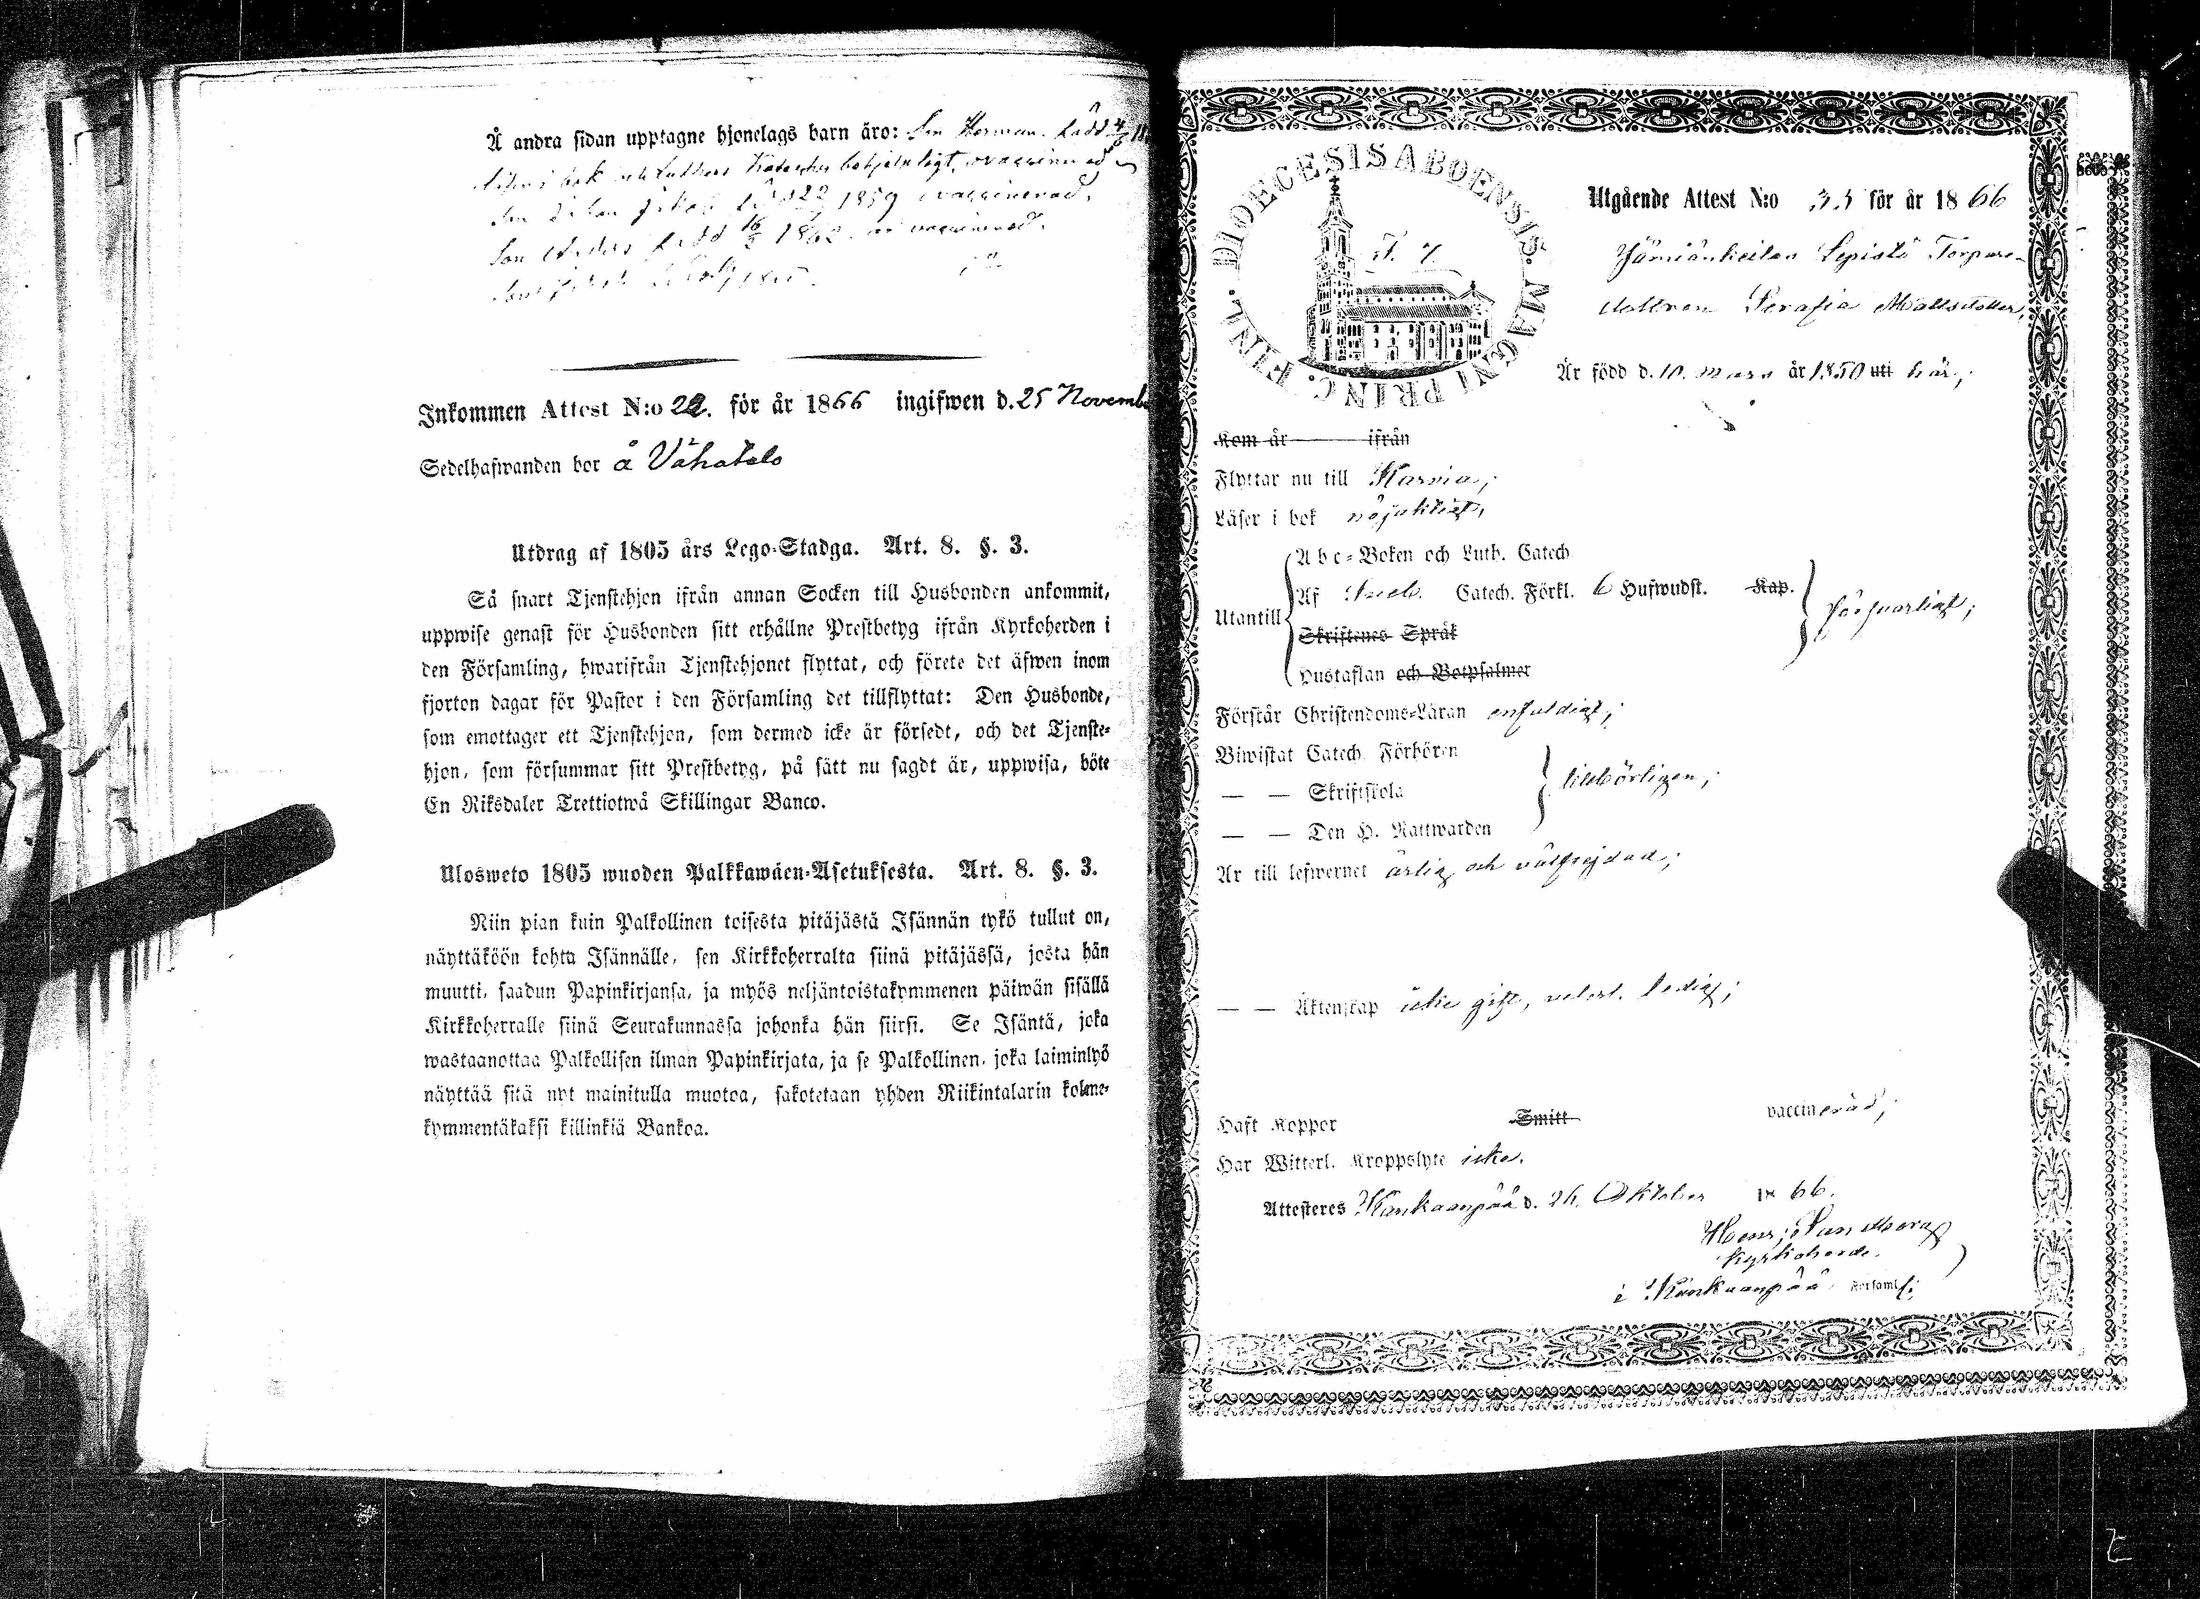 Å andra sidan upptagne hjonelags barn äro: Son Herman. född
i bok och Luthers Kateches behjelpligt, vaccinerad
1859 vaccinerad.
Son Anders född 16/3 1862. vaccinerad.
Son
Inkommen Attest N:o 22. för år 1866 ingifwen d. 25 Novembe
Sedelhafwanden bor å Vähatalo
Utdrag af 1805 års Lego-Stadga. Art. 8. §. 3.
Så snart Tjenstehjon ifrån annan Socken till Husbonden ankommit,
uppwise genast för Husbonden sitt erhållne Prestbetyg ifrån Kyrkoherden i
den Församling, hwarifrån Tjenstehjonet flyttat, och förete det äfwen inom
fjorton dagar för Pastor i den Församling det tillflyttat: Den Husbonde,
som emottager ett Tjenstehjon, som dermed icke är försedt, och det Tjenste-
hjon, som försummar sitt Prestbetyg, på sätt nu sagdt är, uppwisa, böte
En Riksdaler Trettiotwå Skillingar Banco.
Ulosweto 1805 wuoden Palkkawäen-Asetuksesta. Art. 8. §. 3.
Niin pian kuin Palkollinen toisesta pitäjästä Isännän tykö tullut on,
näyttäköön kohta Isännälle, sen Kirkkoherralta siinä pitäjässä, josta hän
muutti, saadun Papinkirjansa, ja myös neljäntoistakymmenen päiwän sisällä
Kirkkoherralle siinä Seurakunnassa johonka hän siirsi. Se Isäntä, joka
wastaanottaa Palkollisen ilman Papinkirjata, ja se Palkollinen, joka laiminlyö
näyttää sitä nyt mainitulla muotoa, sakotetaan yhden Riikintalarin kolme-
kymmentäkaksi killinkiä Bankoa.
DIOECESIS ABOENSIS. MAGNI PRINC. FINL.
Utgående Attest N:o 33 för år 1866
Jämiänkeitas Lepistö Torpare-
dottren Serafia Mattsdotter,
Är född d. 10. mars år 1850 uti här;
Kom år ifrån
Flyttar nu till Karvia;
Läser i bok nöjaktigt,
Abc-Boken och Luth. Catech
Utantill Af Catech. Förkl. 6 Hufwudst. Kap. försvarligt;
Skriftenes Språk
Hustaflan och Botpsalmer
Förstår Christendoms-Läran enfaldigt;
Biwistat Catech. Förhören
— — Skriftskola tillbörligen;
— — Den H. Nattwarden
Är till lefwernet ärlig och välfrejdad;
— — Äktenskap icke gift, veterl. ledig;
Haft Koppor Smitt vaccinerad;
Har Witterl. Kroppslyte icke.
Attesteres Kankaanpää d. 26. Oktober 1866.
Henr. Sandberg
Kyrkoherde.
i Kankaanpää Församl.